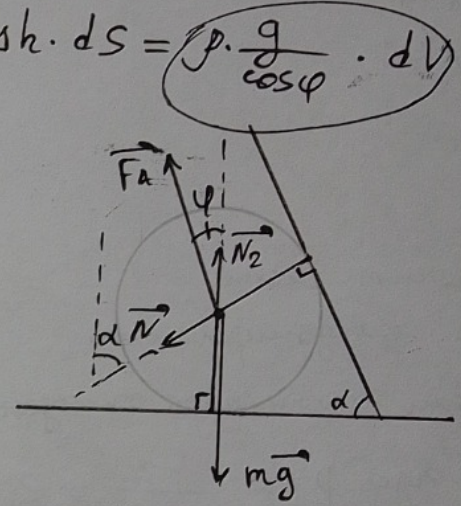 sh · dS = ρ · g/cosφ · dV
F_A
φ
N_2
α N
α
mg